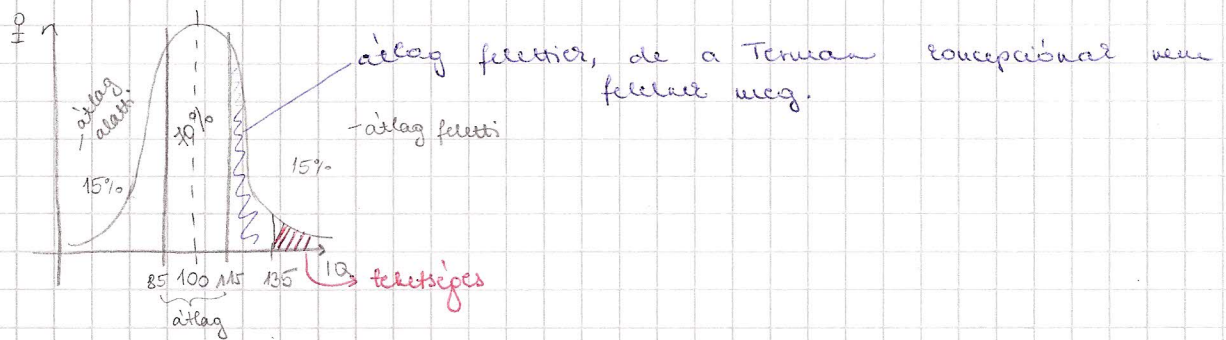 átlag felettiek, de a Terman koncepciónak nem
felelnek meg.
-átlag
alatti
70%
-átlag feletti
15%
15%
85 100 115 135 IQ
tehetséges
átlag